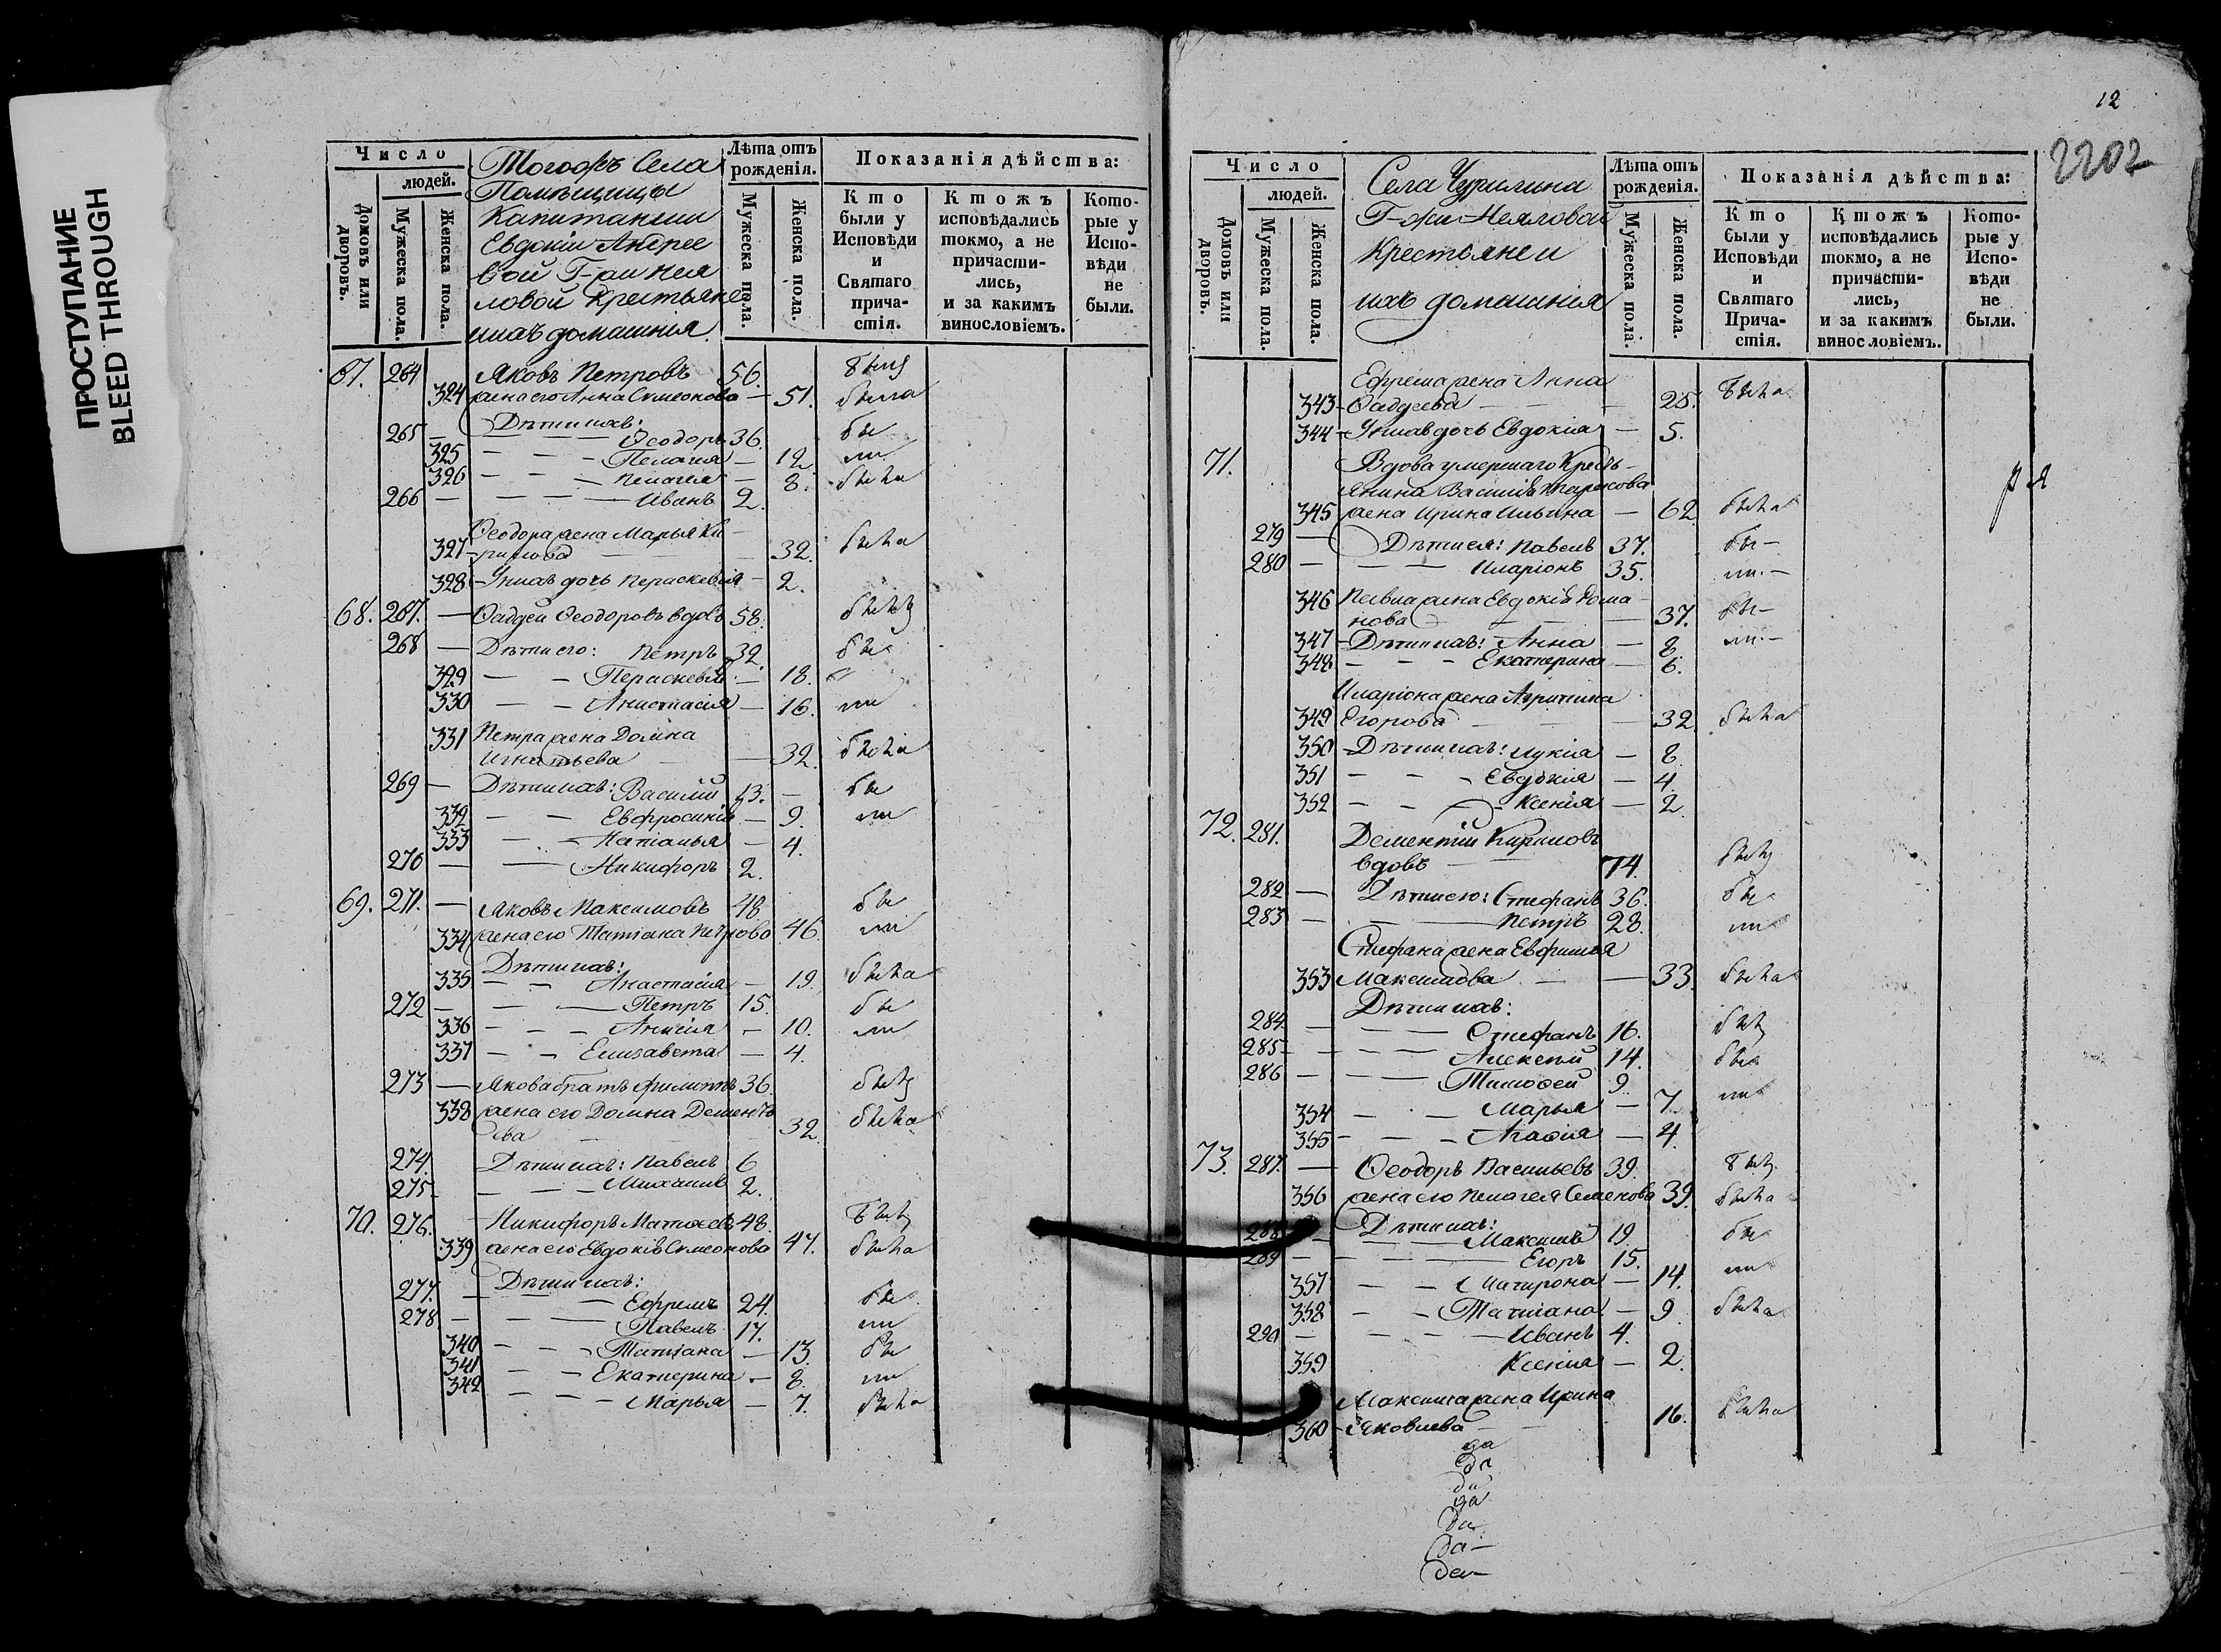 ПРОСТУПАНИЕ
BLEED THROUGH
Число
людей.
Домовъ или дворовъ.
Мужеска пола.
Женска пола.
Тогожъ Села
Помѣщицы
Капитанши
Евдокіи Андрее
вой Г-жи Нея
ловой Крестьяне
ихъ домашнія
Лѣта отъ рожденія.
Мужеска пола.
Женска пола.
Показанія дѣйства:
Кто были у Исповѣди и Святаго причастія.
Ктожъ исповѣдались токмо, а не причастились, и за какимъ винословіемъ.
Которые у Исповѣди не были.
67. 264 Яковъ Петровъ 56.
324 жена его Анна Симеонова — 51. была
Дѣти ихъ:
265 — Ѳеодоръ 36. бы
325 — Пелагія — 12
326 — Пелагея — 8. была
266 — Иванъ 2.
Ѳеодора жена Марья Ки-
327 рилова — 32. была
328 У нихъ дочь Параскевія — 2.
68. 267. — Ѳадей Ѳеодоровъ вдовъ 58.
268 — Дѣти его: Петръ 32. бы
329 — Параскевія — 18.
330 — Анастасія — 16.
331 Петра жена Домна
Игнатьева — 32. была
269 — Дѣти ихъ: Василій 13. — бы
332 — Евфросинія — 9.
333 — Наталья — 4.
270 — Никифоръ 2.
69. 271. — Яковъ Максимовъ 48 бы
334 жена его Татіана Петрова 46.
Дѣти ихъ:
335 — Анастасія — 19. была
272 — Петръ 15. бы
336 — Анисія — 10.
337 — Елизавета — 4.
273 — Якова братъ Филиппъ 36.
338 жена его Домна Дементь
ева 32 была
274. Дѣти ихъ: Павелъ 6
275 — Михаилъ 2.
70. 276. Никифоръ Матвеевъ 48.
339 жена его Евдокія Симеонова 47. была
Дѣти ихъ:
277. — Ефремъ 24. бы
278 — Павелъ 17.
340 — Татіана — 13. бы
341 — Екатерина — 8
342 — Марья — 7. была
12
2202
Число
людей.
Домовъ или дворовъ.
Мужеска пола.
Женска пола.
Села Чурилина
Г-жи Неяловой
Крестьяне и
ихъ домашнія
Лѣта отъ рожденія.
Мужеска пола.
Женска пола.
Показанія дѣйства:
Кто были у Исповѣди и Святаго Причастія.
Ктожъ исповѣдались токмо, а не причастились, и за какимъ винословіемъ.
Которые у Исповѣди не были.
Ефрема жена Анна
343 Ѳадѣева — 25. была
344 У нихъ дочь Евдокія — 5.
71. Вдова умершаго Кресть-
янина Василія Тарасова
345 жена Ирина Ильина — 62 была
279 — Дѣти ея: Павелъ 37. бы —
280 — Иларіонъ 35.
346 Павла жена Евдокія Рома
нова — 37. бы —
347 Дѣти ихъ: Анна — 8
348 — Екатерина — 6.
Иларіона жена Агрипина
349 Егорова — 32 была
350 Дѣти ихъ: Лукія — 8
351 — Евдокія — 4.
352 — Ксенія — 2
72. 281. Дементій Кириловъ
вдовъ 74.
282 — Дѣти его: Стефанъ 36. бы
283 — Петръ 28.
Стефана жена Евфимья
353 Максимова — 33. была
Дѣти ихъ:
284. — Стефанъ 16.
285 — Алексѣй 14. бы
286 — Тимоѳей 9
354 — Марья — 7.
355 — Агаѳія — 4.
73. 287. — Ѳеодоръ Васильевъ 39.
356 жена его Пелагея Семенова 39. была
Дѣти ихъ:
288 — Максимъ 19 бы
289 — Егоръ 15.
357 — Матрона — 14.
358 — Татіана — 9 была
290 — Иванъ 4.
359 Ксенія — 2.
Максима жена Ирина
360 Яковлева 16. была
да
да
да
да
да
да —
да —